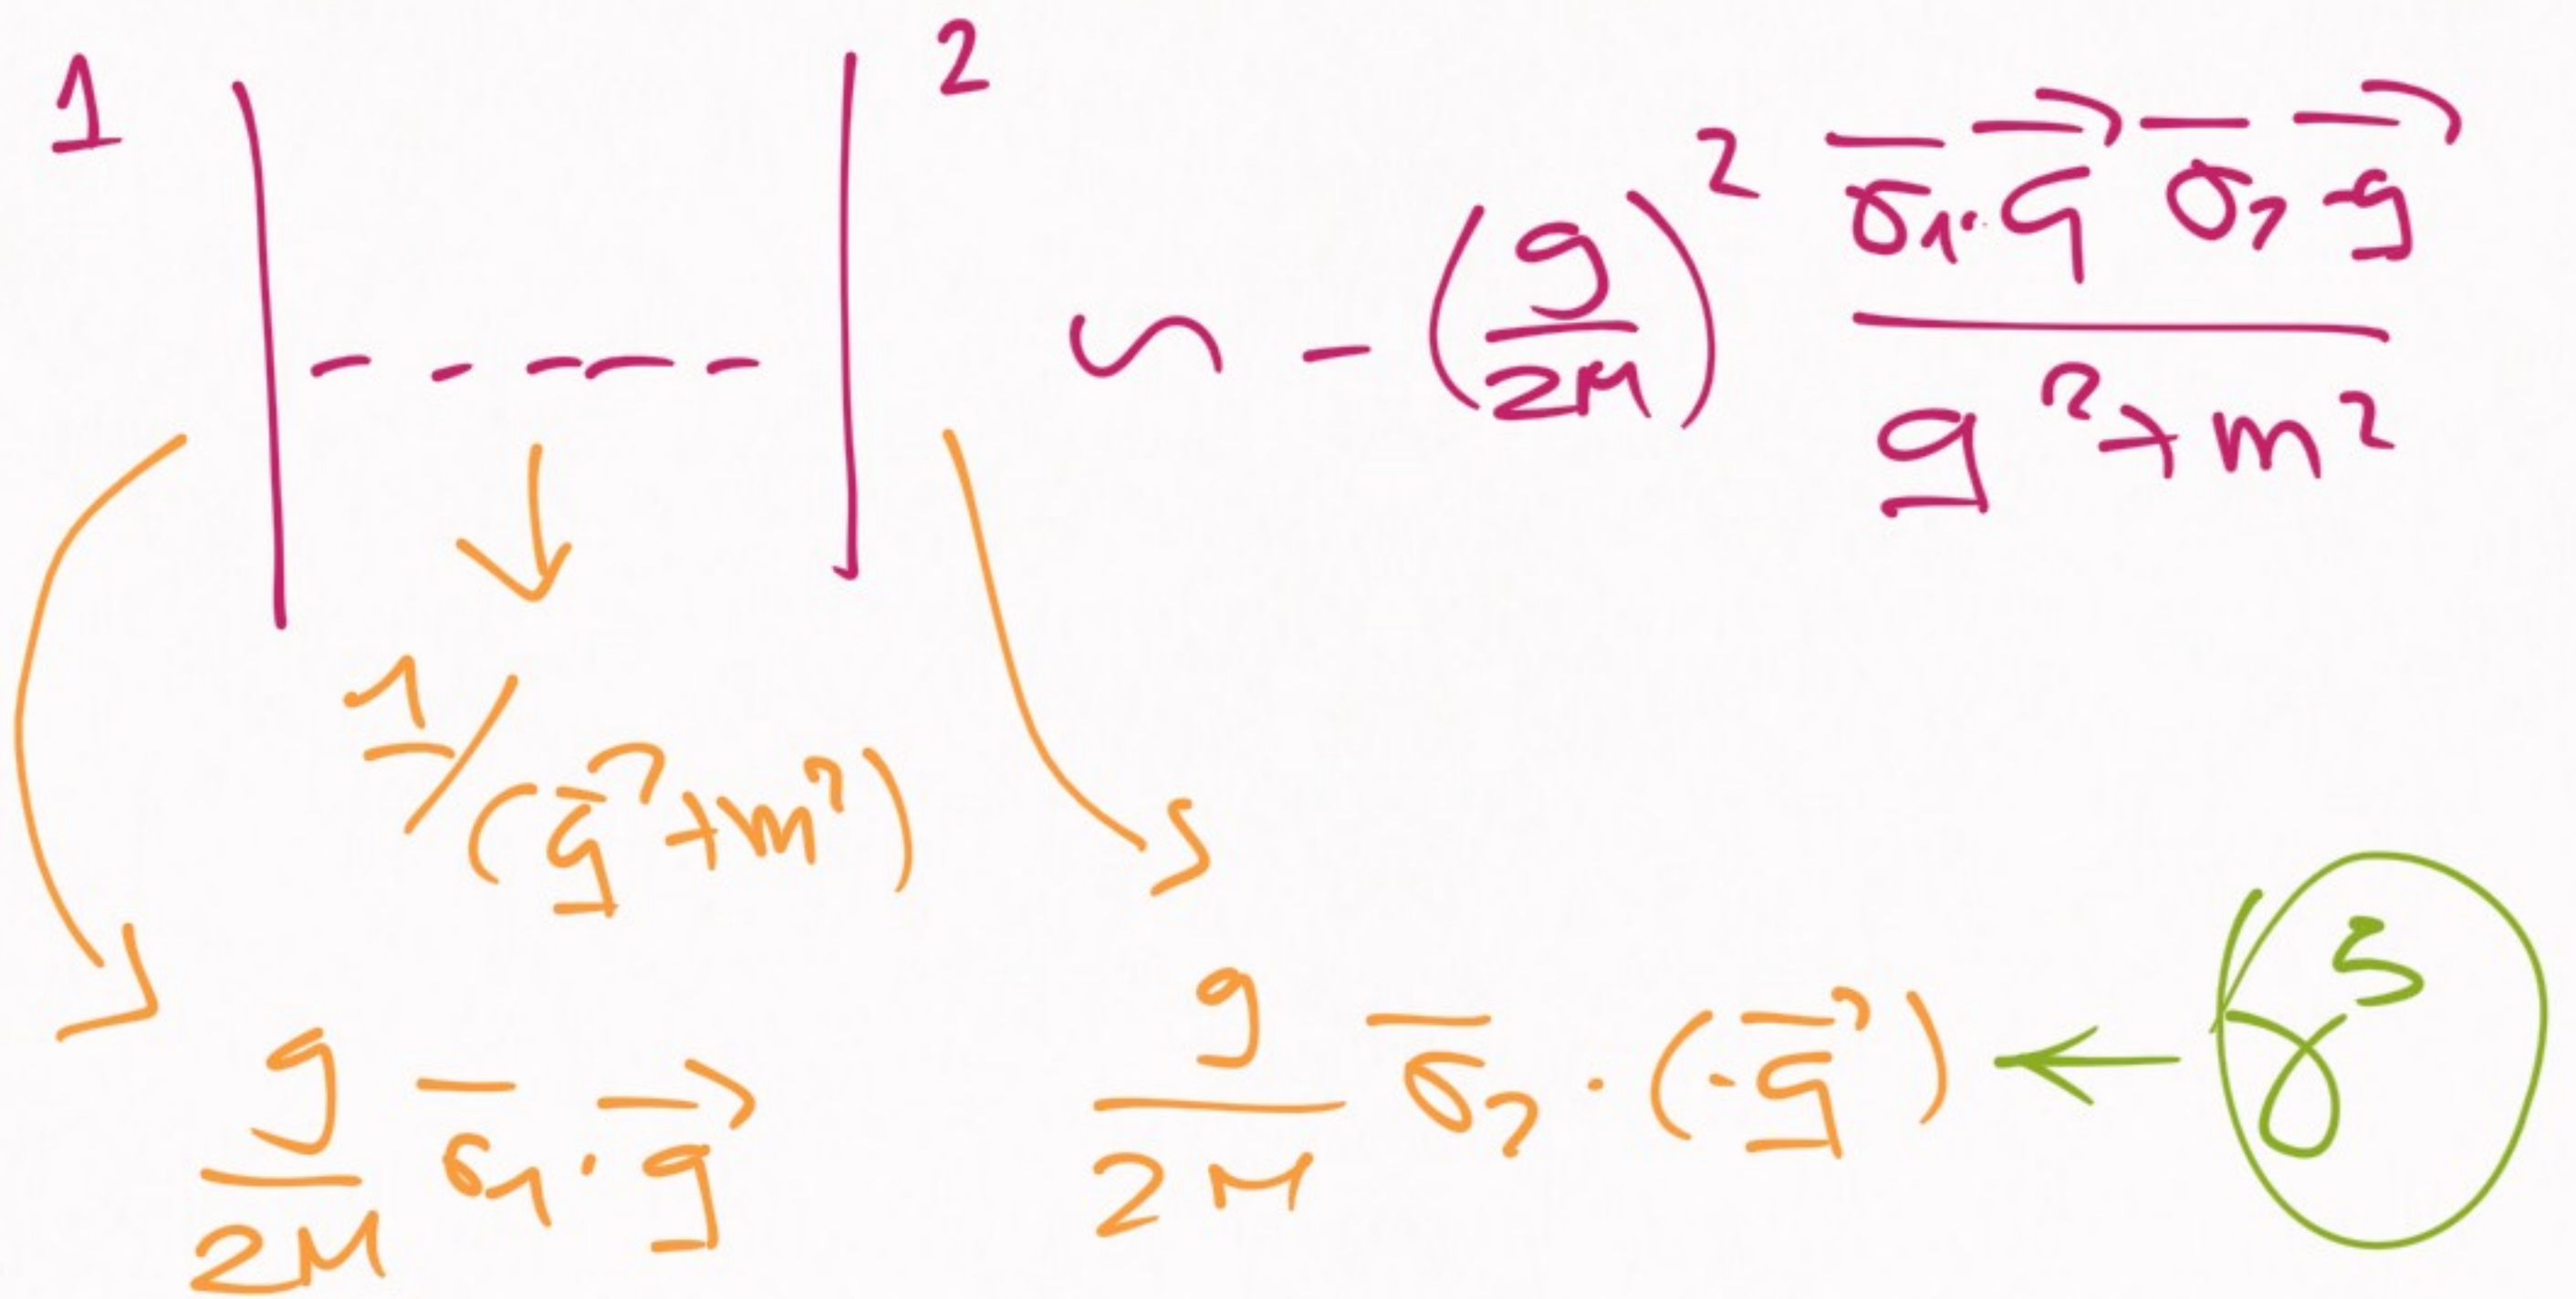 1 2
∼ - (g/2M)² σ⃗₁·q⃗ σ⃗₂ -q⃗ / q² + m²
1/(q⃗² + m²)
g/2M σ⃗₁·q⃗
g/2M σ⃗₂·(-q⃗) ← γ⁵